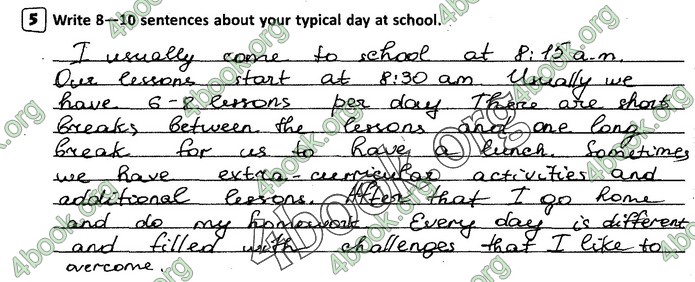 5 Write 8—10 sentences about your typical day at school.
I usually come to school at 8:15 a.m.
Our lessons start at 8:30 am. Usually we
have 6-8 lessons per day. There are short
breaks between the lessons and one long
break for us to have a lunch. Sometimes
we have extra-curricular activities and
additional lessons. After that I go home
and do my homework. Every day is different
and filled with challenges that I like to
overcome.
4book.org